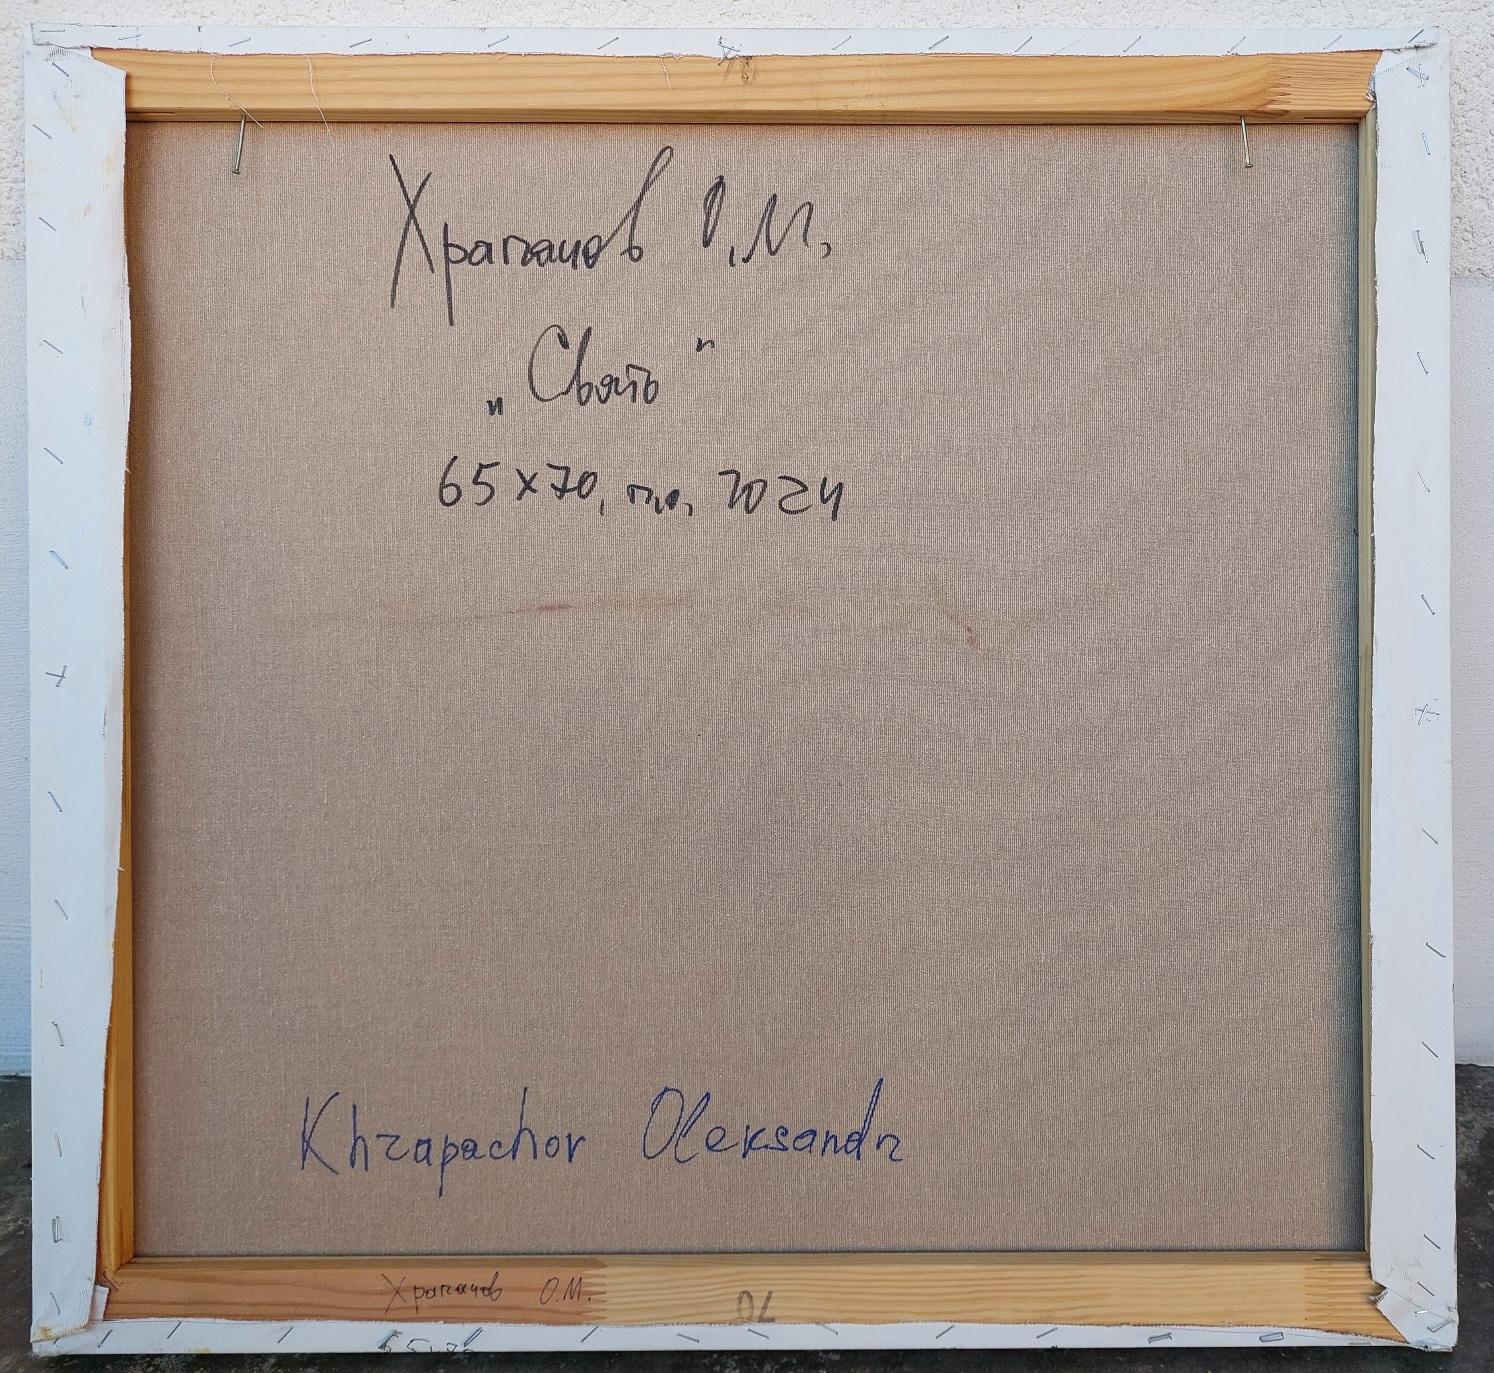 Храпачов О.М.
„Свято"
65х70, п.о, 2024
Khrapachov Oleksandr
Храпачов О.М.
70
65х70